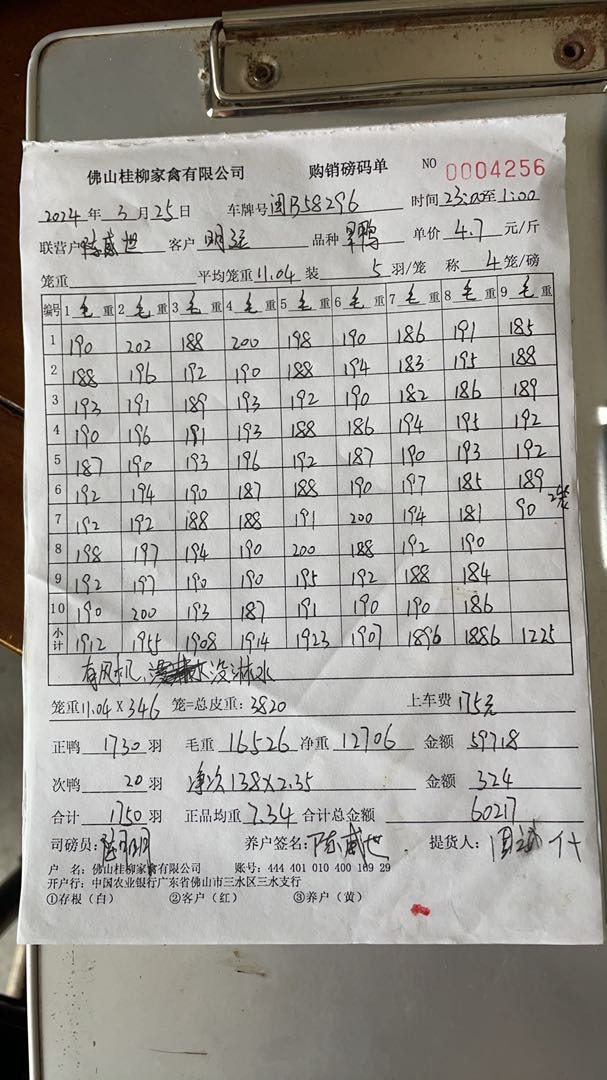 佛山桂柳家禽有限公司 购销磅码单 NO 0004256
2024年3月25日 车牌号闽B58296 时间23:00至1:00
联营户陈威旭 客户明强 品种 单价4.7元/斤
笼重 平均笼重11.04 装5羽/笼 称4笼/磅
编号 1毛重 2毛重 3毛重 4毛重 5毛重 6毛重 7毛重 8毛重 9毛重
1 190 202 188 200 198 190 186 191 185
2 188 196 192 190 188 194 183 195 188
3 193 191 189 193 192 190 182 186 189
4 190 196 191 193 188 186 194 195 192
5 187 190 193 196 192 187 190 193 192
6 192 194 190 187 188 190 197 185 189
7 192 192 188 188 191 200 194 181 90 2笼
8 198 197 194 190 200 188 192 190
9 192 197 190 190 195 192 188 184
10 190 200 193 187 191 190 190 186
小计 1912 1955 1908 1914 1923 1907 1896 1886 1225
有风机,没淋水
笼重11.04×346笼=总皮重:3820 上车费175元
正鸭1730羽 毛重16526净重12706 金额59718
次鸭20羽 净次138×2.35 金额324
合计1750羽 正品均重7.34 合计总金额60217
司磅员: 养户签名:陈威旭 提货人:
户 名:佛山桂柳家禽有限公司 账号:444 401 010 400 189 29
开户行:中国农业银行广东省佛山市三水区三水支行
①存根(白) ②客户(红) ③养户(黄)